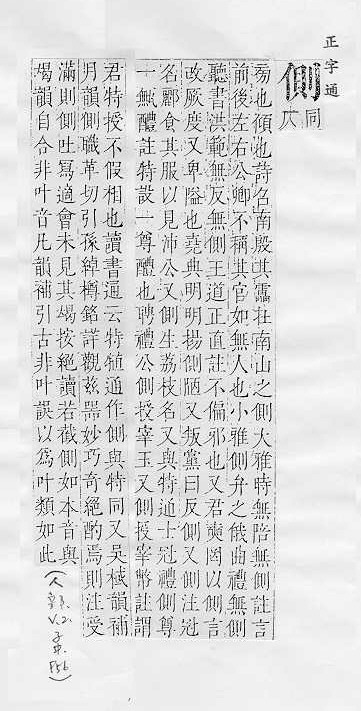 正字通
側
同
旁也傾也詩召南殷其靁在南山之側大雅時無陪無側註言
前後左右公卿不稱其官如無人也小雅側弁之俄曲禮無側
聽書洪範無反無側王道正直註不偏邪也又君奭罔以側言
改厥度又卑隘也堯典明明揚側陋又叛黨曰反側又側注冠
名酈食其服以見沛公又側生荔枝名又與特通士冠禮側尊
一甒醴註特設一尊醴也聘禮公側授宰玉又側授宰幣註謂
君特授不假相也讀書通云特犆通作側與特同又吳棫韻補
月韻側職革切引孫綽樽銘詳觀兹器妙巧奇絕酌焉則注受
滿則側吐寫適會未見其竭按絕讀若截側如本音與
竭韻自合非叶音凡韻補引古非叶誤以爲叶類如此